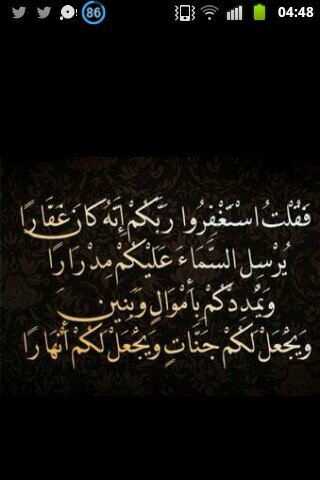 86
04:48
فَقُلْتُ اسْتَغْفِرُوا رَبَّكُمْ إِنَّهُ كَانَ غَفَّارًا
يُرْسِلِ السَّمَاءَ عَلَيْكُمْ مِدْرَارًا
وَيُمْدِدْكُمْ بِأَمْوَالٍ وَبَنِينَ
وَيَجْعَلْ لَكُمْ جَنَّاتٍ وَيَجْعَلْ لَكُمْ أَنْهَارًا